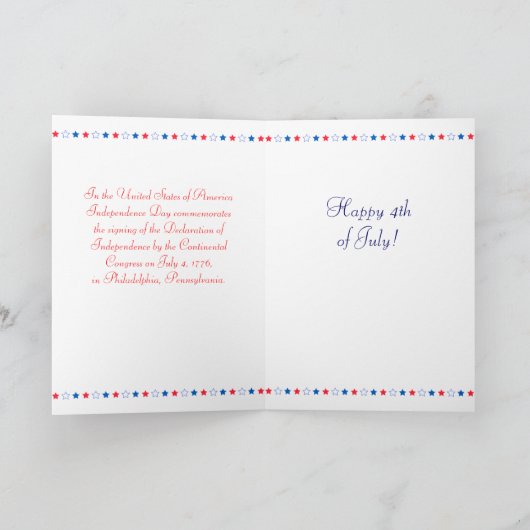 In the United States of America
Independence Day commemorates
the signing of the Declaration of
Independence by the Continental
Congress on July 4, 1776,
in Philadelphia, Pennsylvania.
Happy 4th
of July!